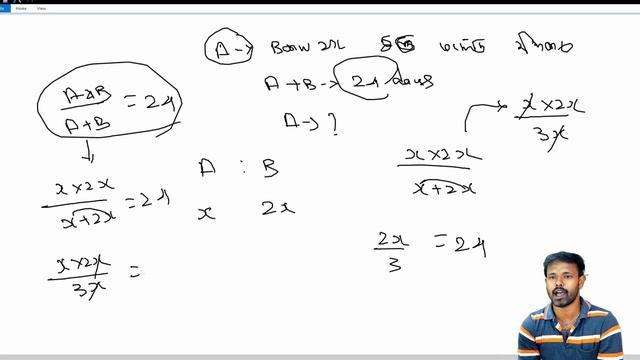 Home View
A → B
A + B → 24 days
A → ?
A×B / A+B = 24
x × 2x / x + 2x = 24
x × 2x / 3x =
A : B
x 2x
x × 2x / x + 2x
x × 2x / 3x
2x / 3 = 24